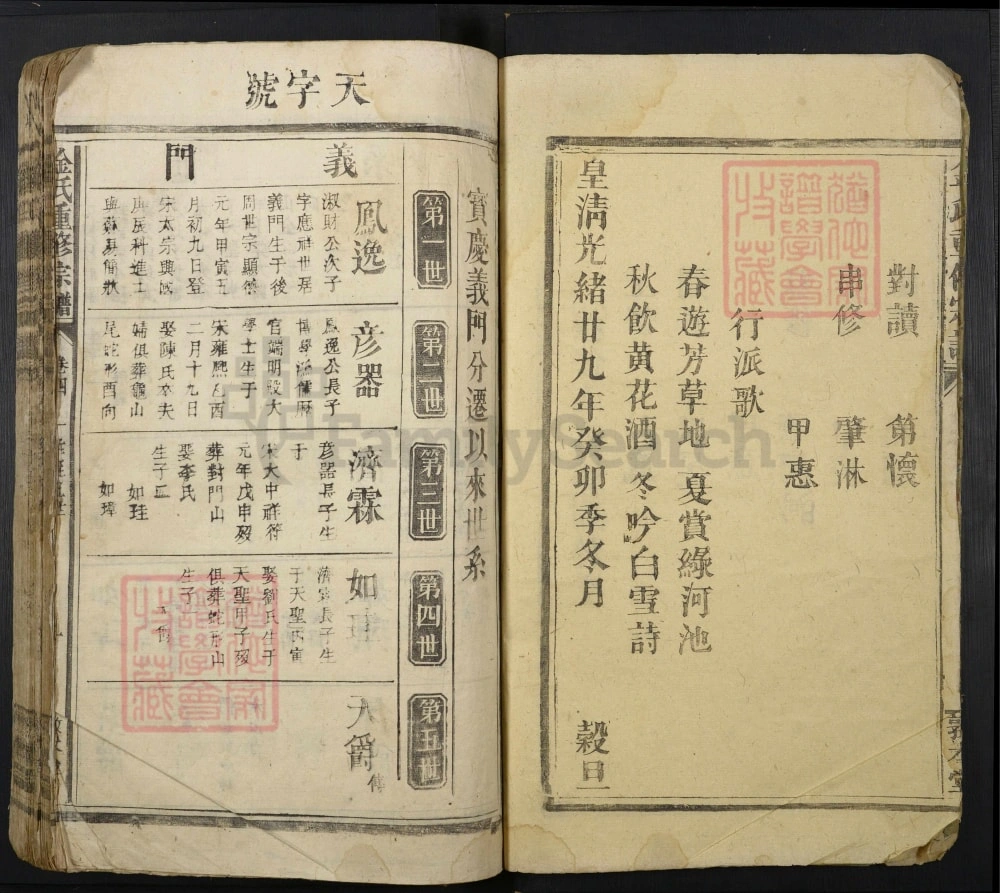 對讀 第懷
申修 肇淋
甲惠
行派歌
春遊芳草地 夏賞綠河池
秋飲黃花酒 冬吟白雪詩
皇清光緒廿九年癸卯季冬月 穀旦
天字號
寶慶義門分遷以來世系
第一世
第二世
第三世
第四世
第五世
義門
鳳逸
淑財公次子
字應祥世居
義門生于後
周世宗顯德
元年甲寅五
月初九日登
宋太宗興國
庚辰科進士
彥器
鳳逸公長子
博學
官端明殿大
學士生于
宋雍熙乙酉
二月十九日
娶陳氏卒夫
婦俱葬龜山
尾蛇形酉向
濟霖
彥器長子生
于
宋大中祥符
元年戊申歿
葬對門山
娶李氏
生子二
如珪
如璋
如珪
濟霖長子生
于天聖丙寅
娶劉氏生于
天聖甲子歿
俱葬蛇形山
生子
天爵
傳
金氏重修宗譜
卷四
敦本堂
FamilySearch